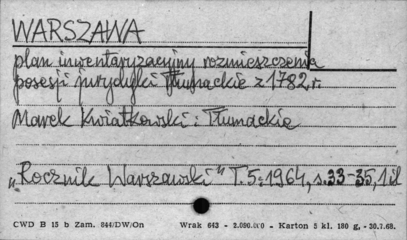 WARSZAWA
plan inwentaryzacyjny rozmieszczenia
posesji jurydyki Tłumackie z 1782 r.
Marek Kwiatkowski : Tłumackie
„Rocznik Warszawski" T. 5: 1964, s. 33-35, 1 il
CWD B 15 b Zam. 844/DW/On Wrak 643 - 2.090.000 - Karton 5 kl. 180 g. - 30.7.68.